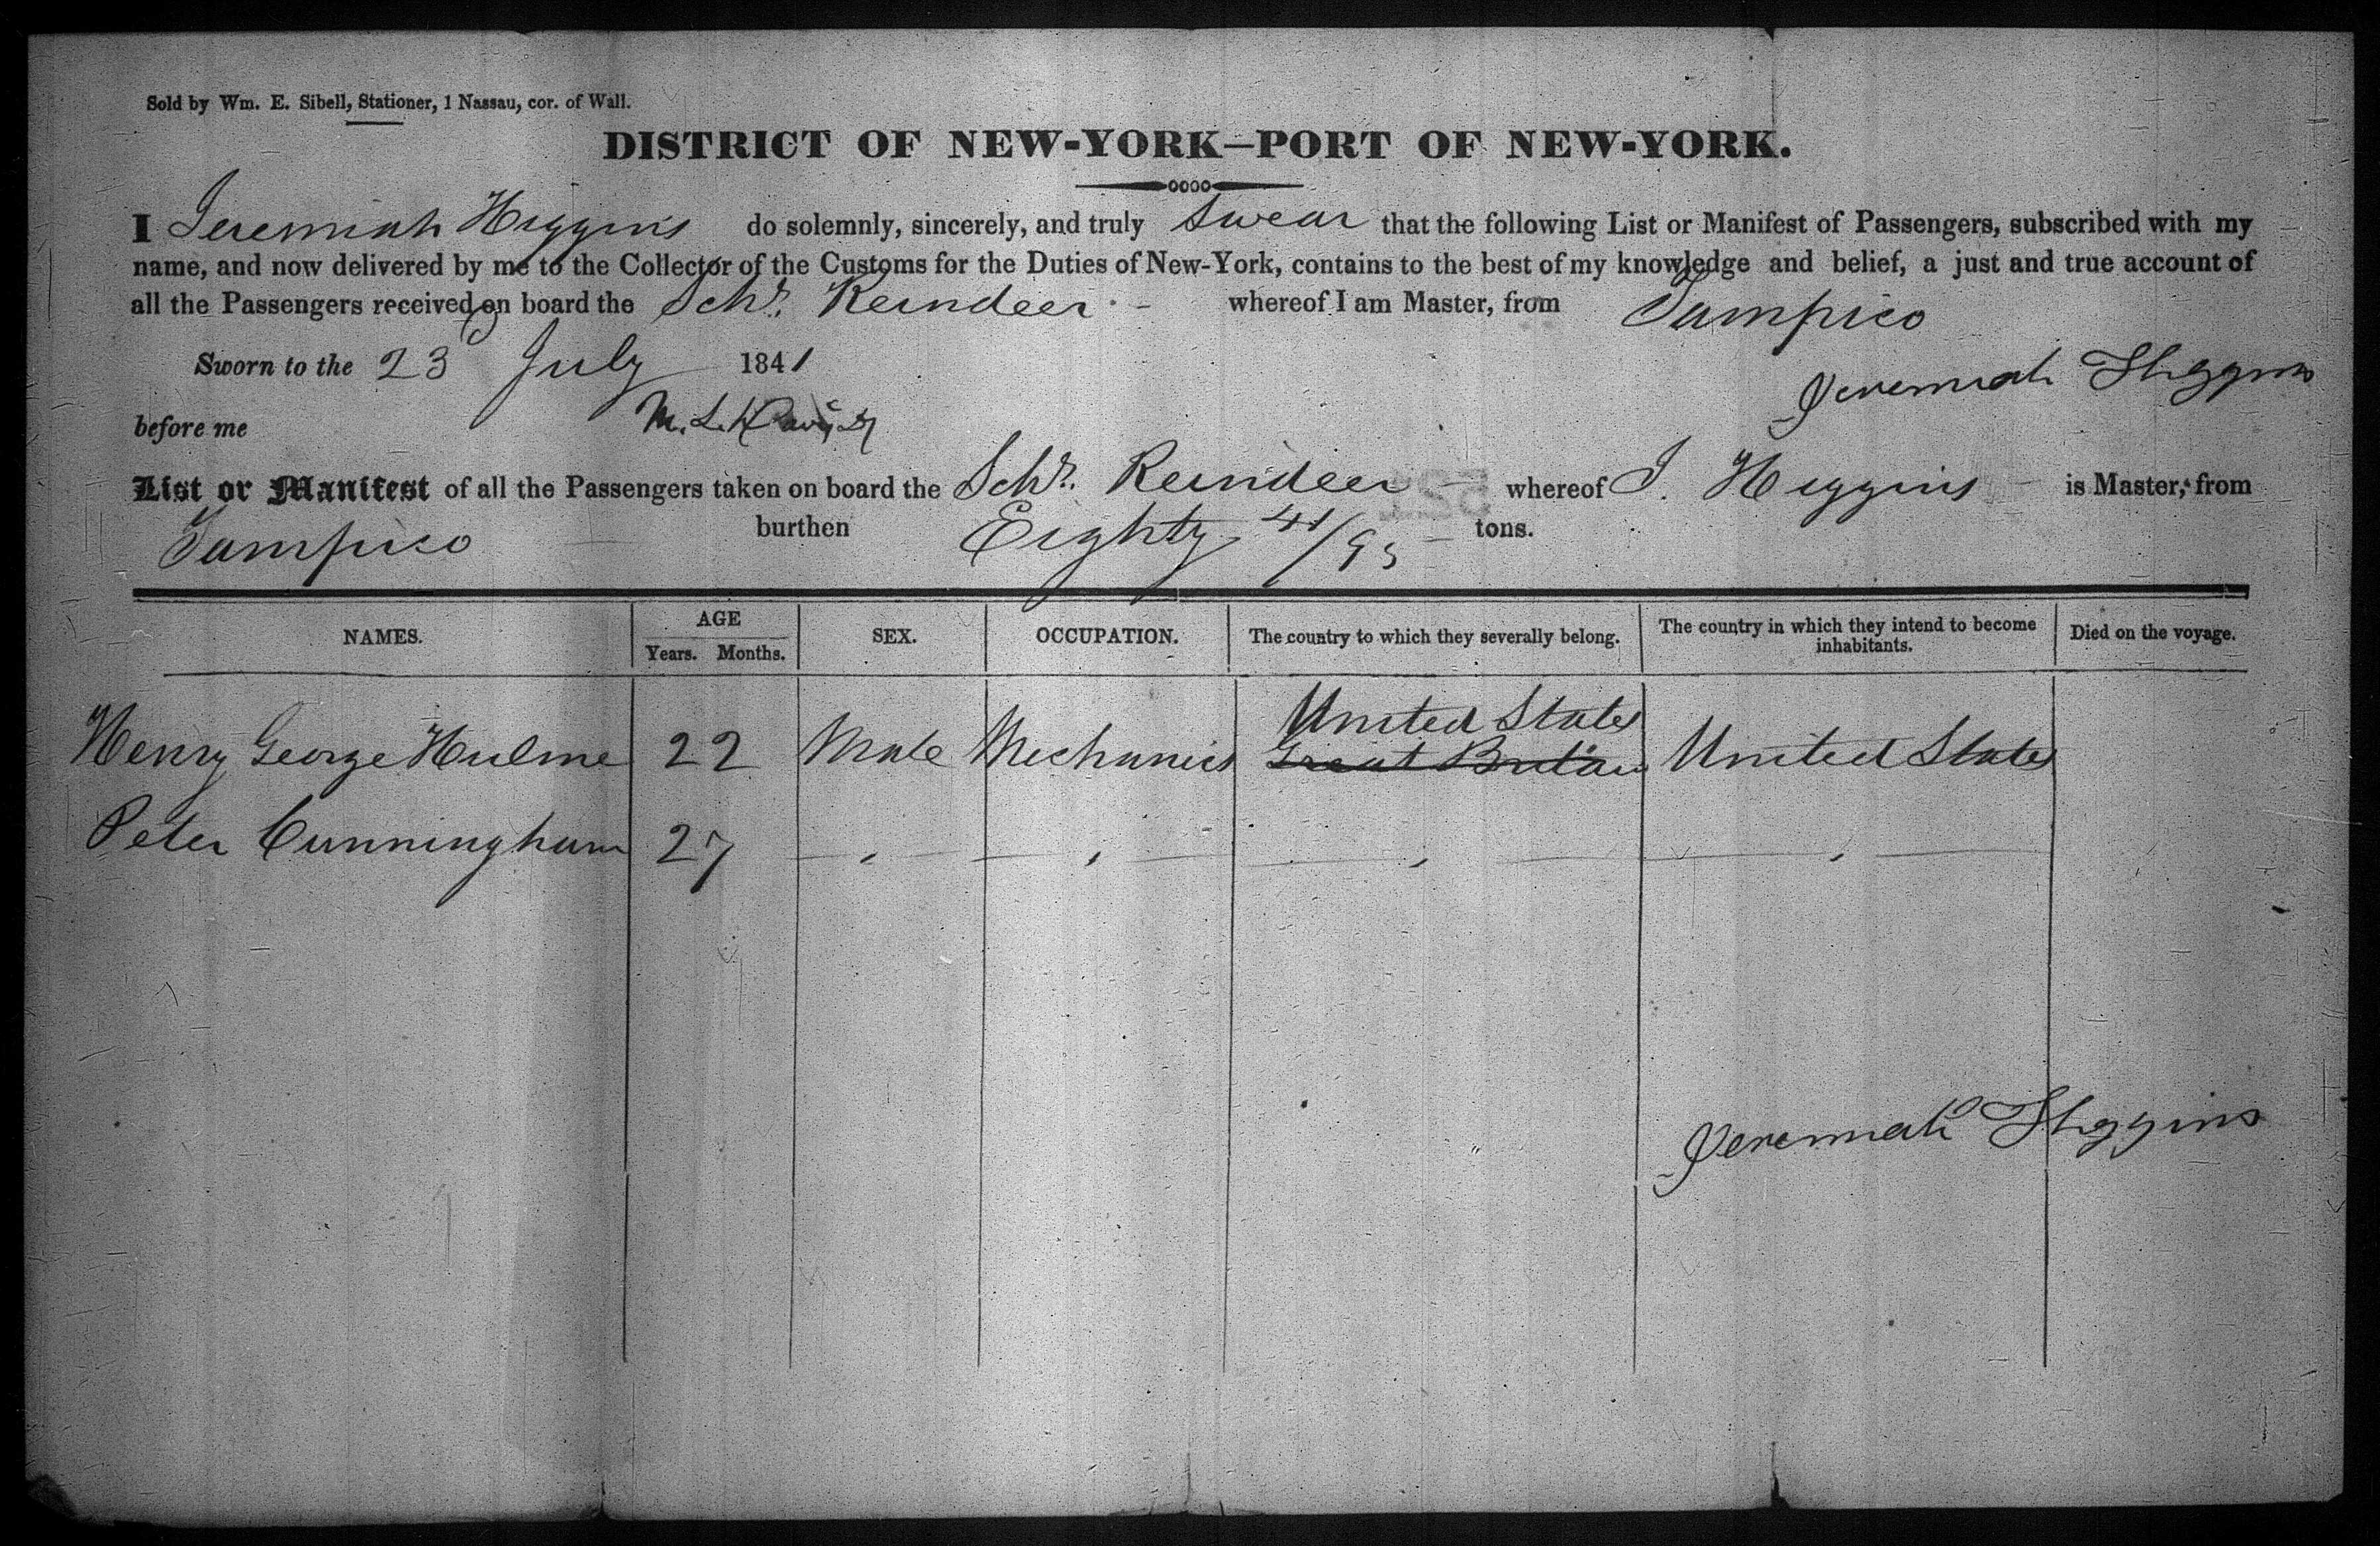 Sold by Wm. E. Sibell, Stationer, 1 Nassau, cor. of Wall.
DISTRICT OF NEW-YORK—PORT OF NEW-YORK.
I Jeremiah Higgins do solemnly, sincerely, and truly Swear that the following List or Manifest of Passengers, subscribed with my
name, and now delivered by me to the Collector of the Customs for the Duties of New-York, contains to the best of my knowledge and belief, a just and true account of
all the Passengers received on board the Schr. Reindeer whereof I am Master, from Tampico
Sworn to the 23 July 1841
Jeremiah Higgins
before me M. L. Davis
List or Manifest of all the Passengers taken on board the Schr. Reindeer whereof J. Higgins is Master, from
Tampico burthen Eighty 41/95 tons.
NAMES. AGE Years. Months. SEX. OCCUPATION. The country to which they severally belong. The country in which they intend to become inhabitants. Died on the voyage.
United States
Henry George Hulme 22 Male Mechanics Great Britain United States
Peter Cunningham 27 — , — — , — — , — — , —
Jeremiah Higgins